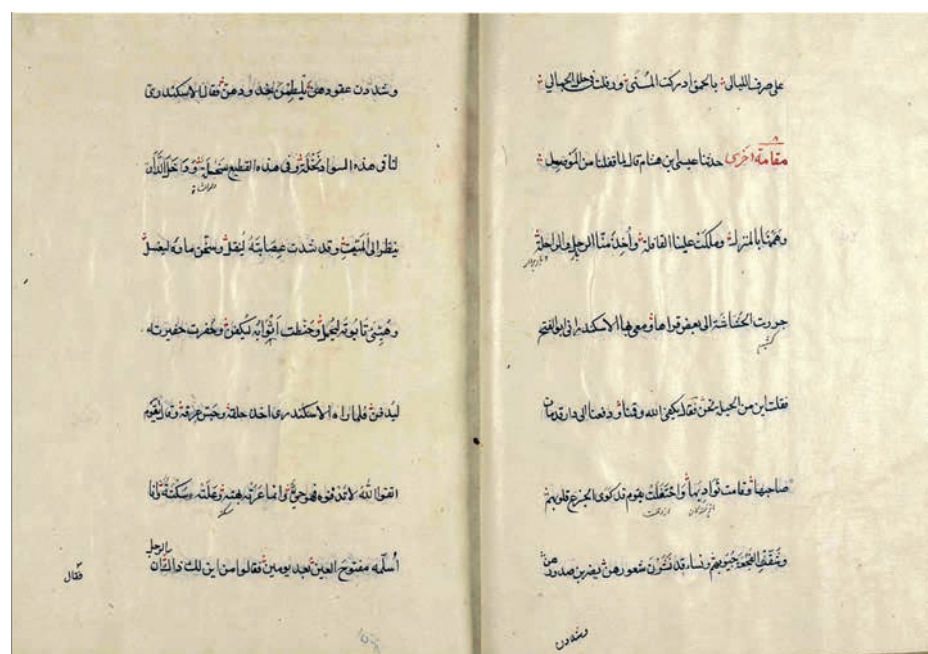 على صرف الليالي بالحمق ادركت المنى ورفلت في حلل الجمال
٨
مقامة اخرى حدثنا عيسى بن هشام قال لما قفلنا من الموصل
وهممنا بالمنزلة وملكت علينا القافلة وأخذ منّا الرحل والراحلة
جرت الحشاشة الى بعض قراها ومعي بها الاسكندراني ابو الفتح
فقلت اين من الحيل نحن فقال يكفي الله وقنا ودفعنا الى دار قد مات
صاحبها وقامت نوادبها واحتفلت بقوم قد كوى الجزع قلوبهم
وشققت الفجعة جيوبهم ونساء قد نشرن شعورهن يضربن صدورهن
وشددن
وشددن عقودهن يلطمن خدودهن فقال الاسكندري
لنا في هذه السواد نخلة وفي هذه القطيع سخلة ودخل الدار
ينظر الى الميت وقد شدت عصابته لينقل وسخن ماؤه ليغسل
وهيئ تابوته ليحمل وخيطت اثوابه ليكفن وحفرت حفيرته
ليدفن فلما راه الاسكندرى اخذ حلقه وجس عرقه وقال يا قوم
اتقوا الله لا تدفنوه فهو حيّ وانما عرته بهتة وعلته سكتة وانا
سكته
أسلّمه مفتوح العين بعد يومين فقالوا من اين لك ذلك فقال ان
الرجل
فقال